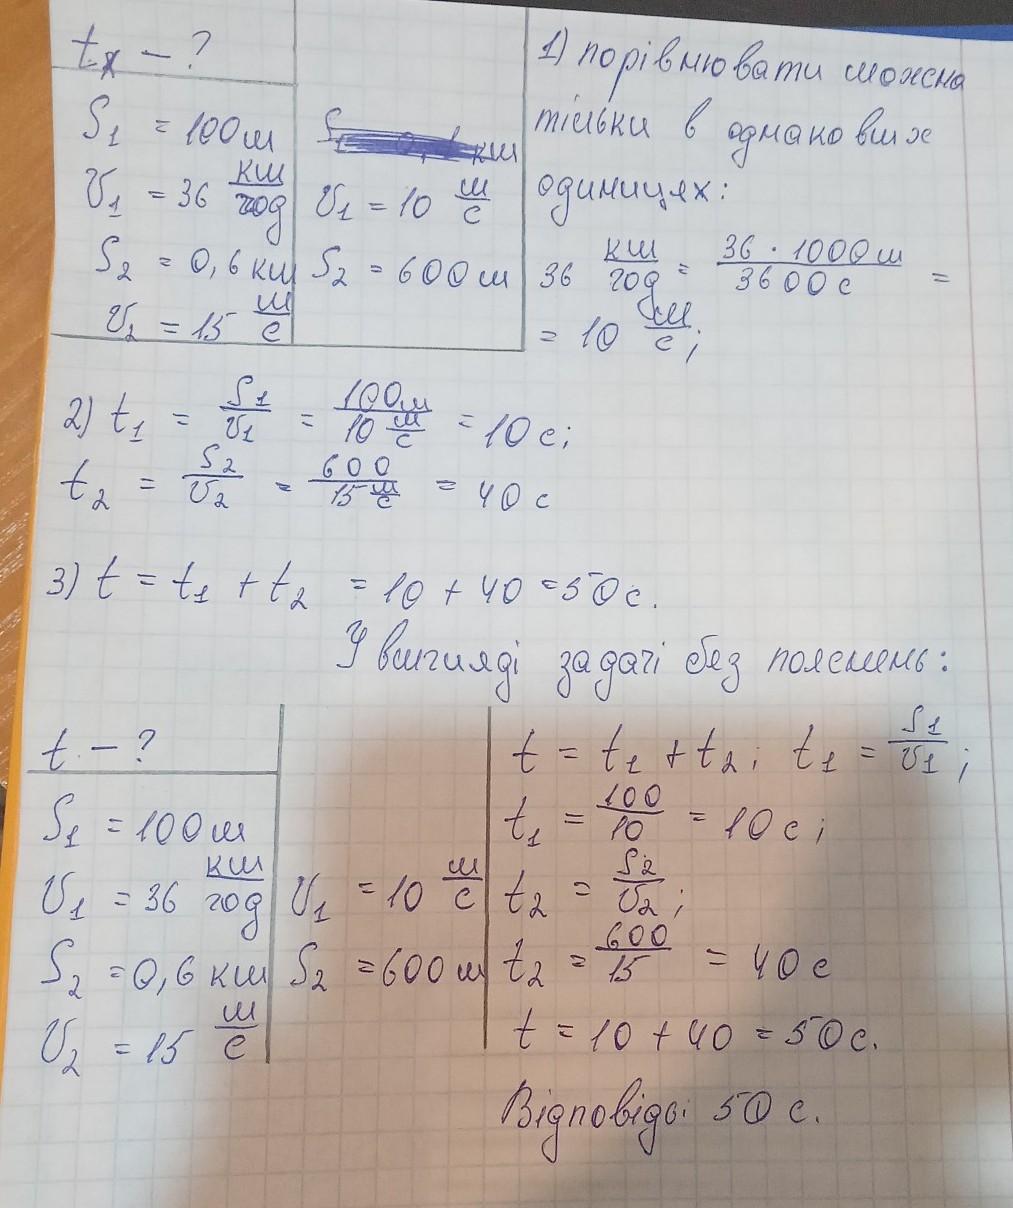 tx – ?
S₁ = 100 м
V₁ = 36 км/год
S₂ = 0,6 км
V₂ = 15 м/с
V₁ = 10 м/с
S₂ = 600 м
1) порівнювати можна
тільки в однакових
одиницях:
36 км/год = 36 · 1000 м / 3600 с =
= 10 м/с;
2) t₁ = S₁/V₁ = 100 м / 10 м/с = 10 с;
t₂ = S₂/V₂ = 600 / 15 м/с = 40 с
3) t = t₁ + t₂ = 10 + 40 = 50 с.
У вигляді задачі без пояснень:
t – ?
S₁ = 100 м
V₁ = 36 км/год
S₂ = 0,6 км
V₂ = 15 м/с
V₁ = 10 м/с
S₂ = 600 м
t = t₁ + t₂; t₁ = S₁/V₁;
t₁ = 100/10 = 10 с;
t₂ = S₂/V₂;
t₂ = 600/15 = 40 с
t = 10 + 40 = 50 с.
Відповідь: 50 с.